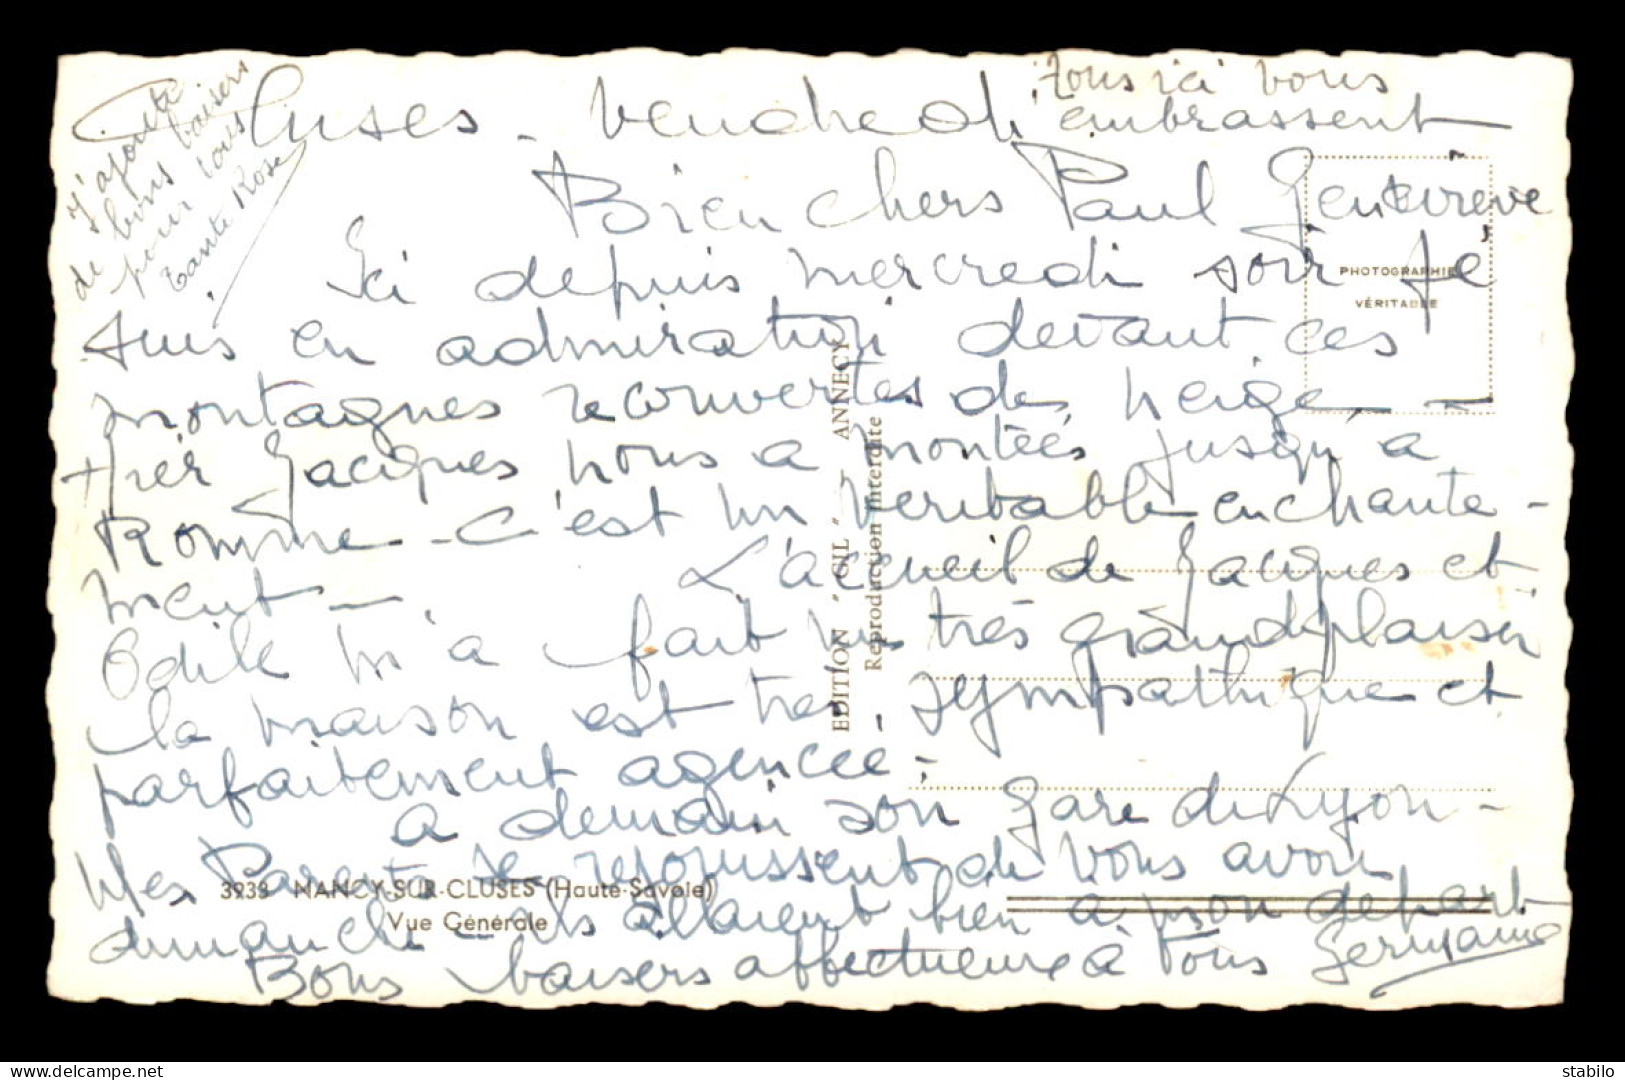 Cluses - Vendredi
tous ici vous
embrassent
J'ajoute
de bons baisers
pour vous
Tante Rose
Bien chers Paul Geneviève
Ici depuis mercredi soir je
suis en admiration devant ces
montagnes recouvertes de neige -
Hier Jacques nous a montées jusqu'à
Romme - C'est un véritable enchante-
ment - L'accueil de Jacques et
Odile m'a fait un très grand plaisir
la maison est très sympathique et
parfaitement agencée -
A demain soir Gare de Lyon -
Mes Parents se réjouissent de vous avoir
dimanche - ils allaient bien à mon départ
Bons baisers affectueux à tous Germaine
PHOTOGRAPHIE
VÉRITABLE
EDITION "GIL" - ANNECY
Reproduction interdite
3939 NANCY-SUR-CLUSES (Haute-Savoie)
Vue Générale
delcampe.net
stabilo